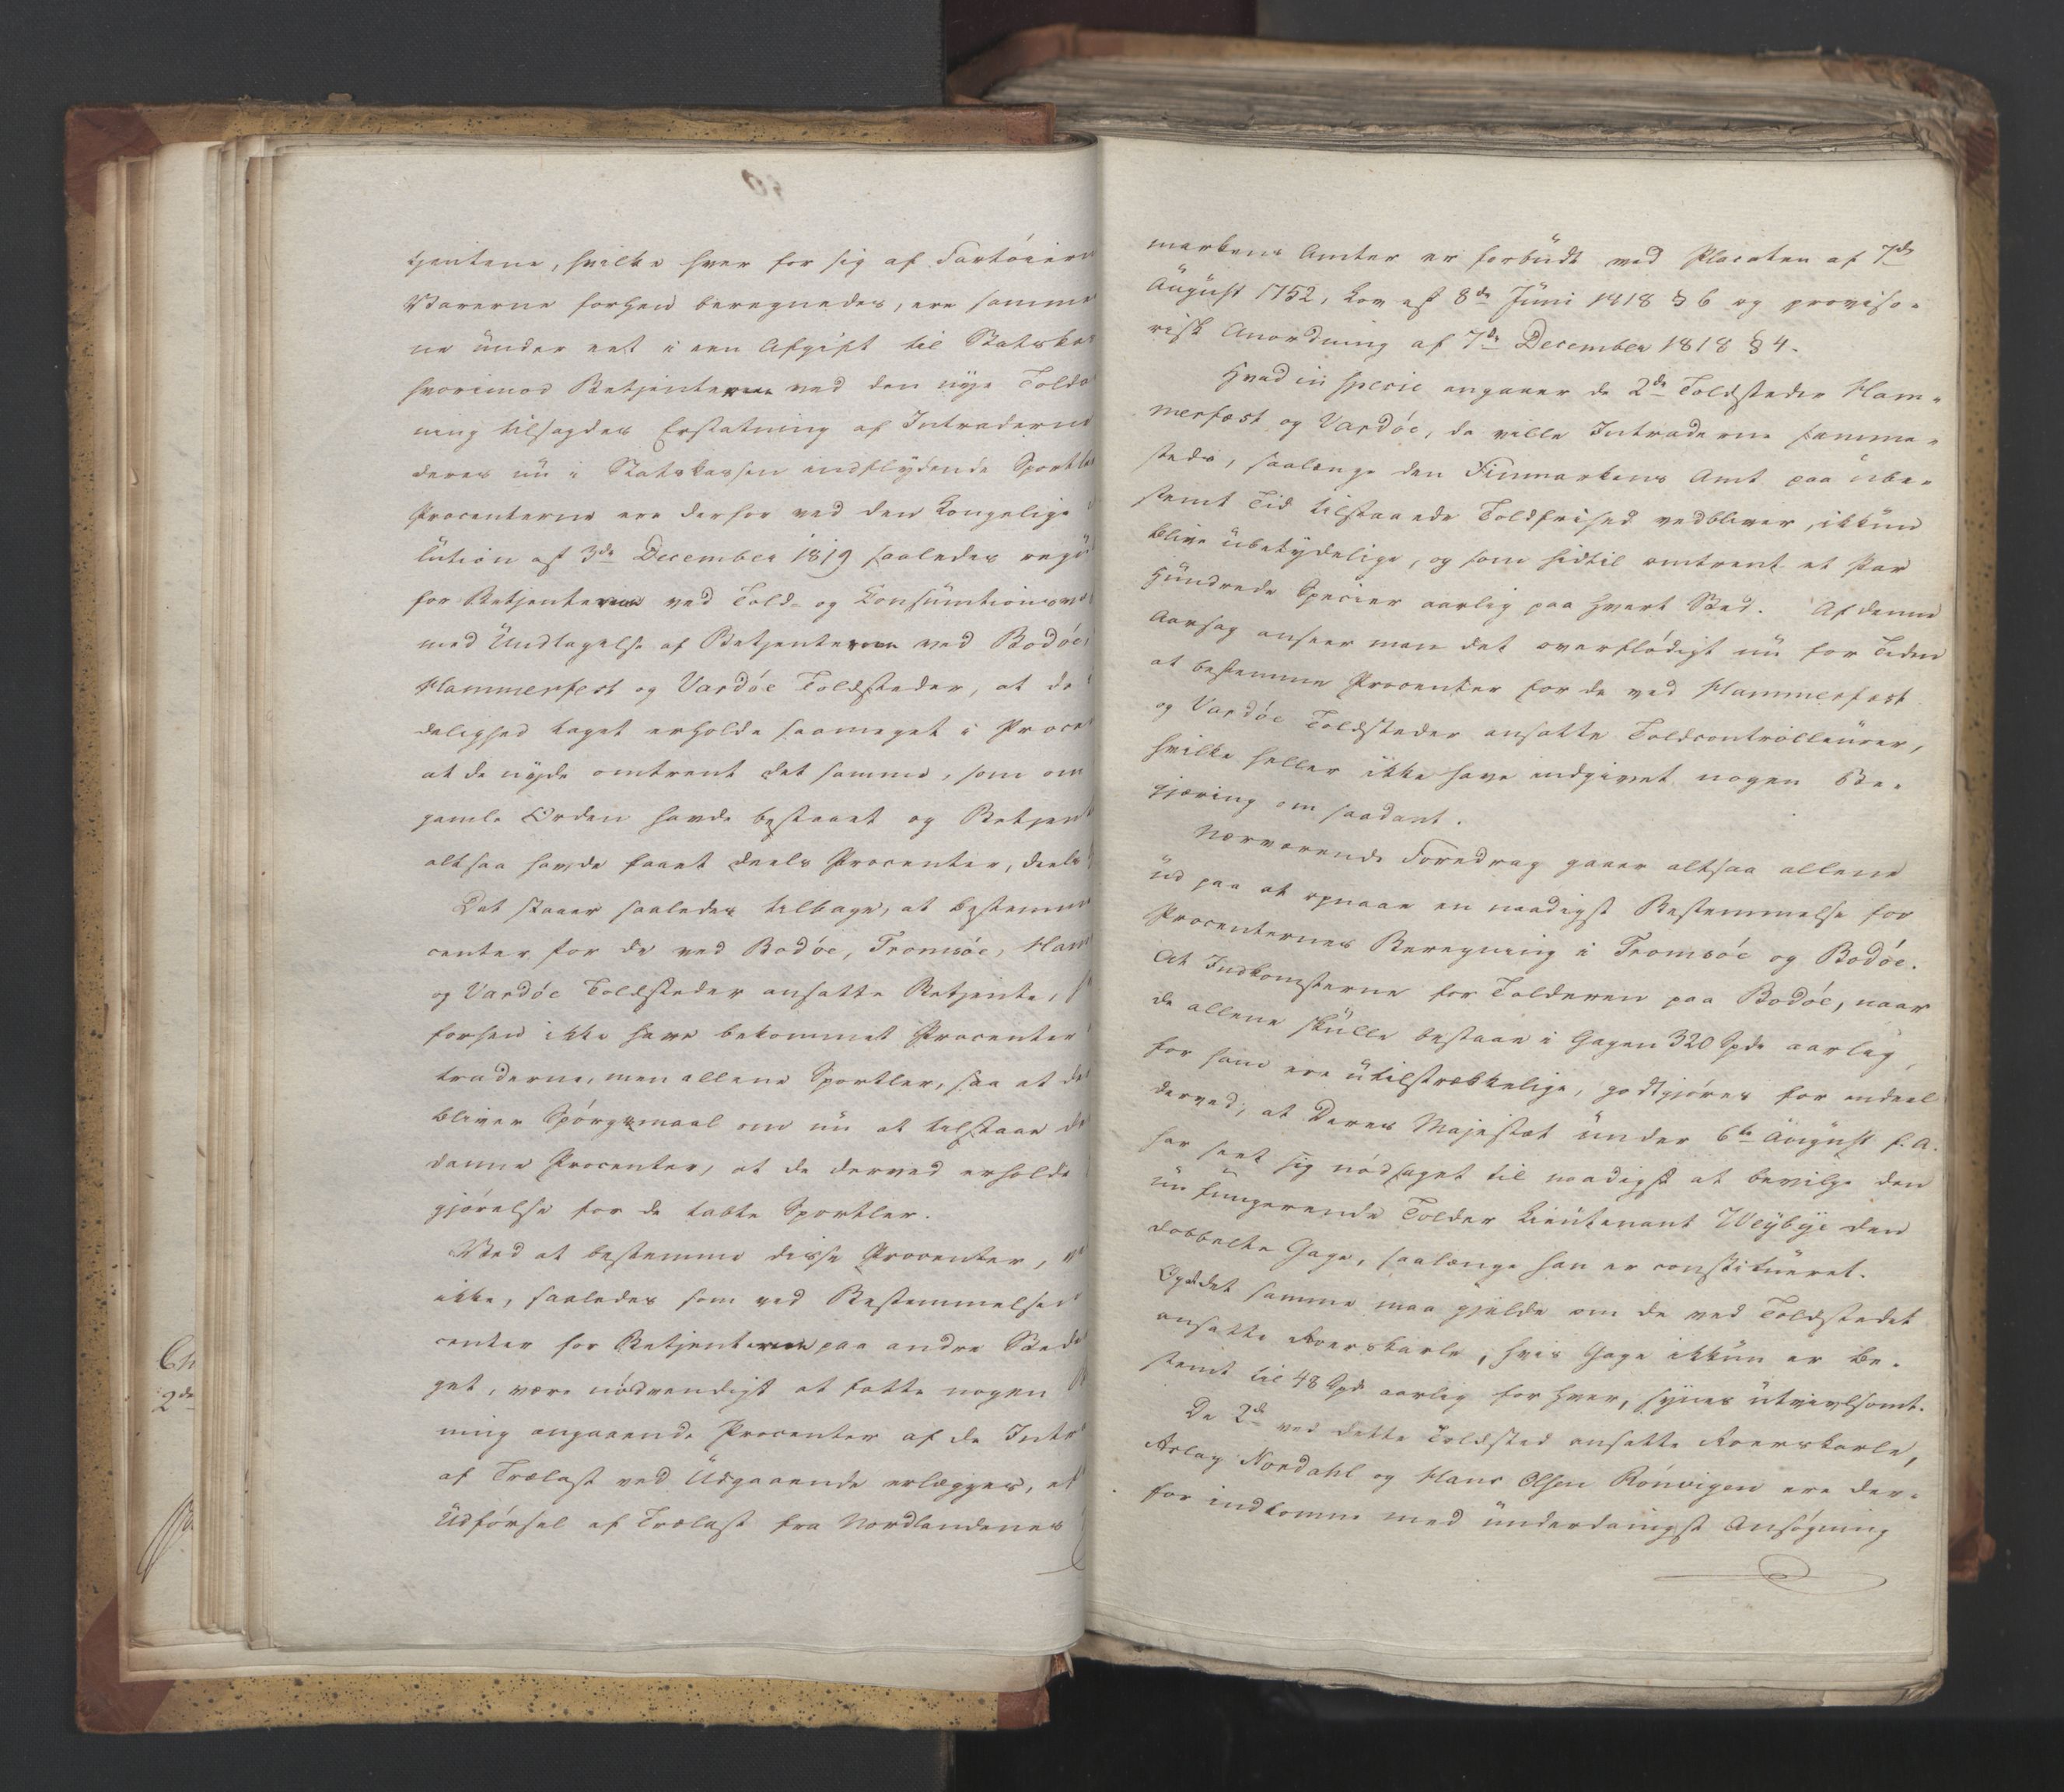 tjentene, hvilke hver for sig af Fartöiern
Varerne forhen beregnedes, ere samme
ne under eet i een Afgift til Statskas
hvorimod Betjenterne ved den nye Toldo
ning tilsagdes Erstatning af Intraderne
deres nu i Statskassen indflydende Sportler
Procenterne ere derfor ved den Kongelige
lution af 3de December 1819 saaledes regu
for Betjenterne ved Told- og Consumtionsvæ
med Undtagelse af Betjenterne ved Bodöe,
Hammerfest og Vardöe Toldsteder, at de
delighed taget erholde saameget i Proce
at de nyde omtrent det samme, som om
gamle Orden havde bestaaet og Betjent
altsaa havde faaet deels Procenter, deels
Det staaer saaledes tilbage, at bestemme
center for de ved Bodöe, Tromsöe, Ham
og Vardöe Toldsteder ansatte Betjente,
forhen ikke have bekommet Procenter
traderne, men allene Sportler, saa at de
bliver Spörgsmaal om nu at tilstaae de
danne Procenter, at de derved erholde
gjörelse for de tabte Sportler.
Ved at bestemme disse Procenter,
ikke, saaledes som ved Bestemmelsen
center for Betjenterne paa andre Sted
get, være nödvendigt at fatte nogen
ning angaaende Procenter af de Intr
af Trælast ved Udgaaende erlægges,
Udförsel af Trælast fra Nordlandenes
markens Amter er forbudt ved Placaten af 7de
August 1752, Lov af 8de Juni 1818 § 6 og proviso-
risk Anordning af 7de December 1818 § 4.
Hvad in specie angaaer de 2de Toldsteder Ham-
merfest og Vardöe, da ville Intraderne samme-
steds, saalænge den Finmarkens Amt paa ube-
stemt Tid tilstaaede Toldfrihed vedbliver, ikkun
blive ubetydelige, og som hidtil omtrent et Par
Hundrede Specier aarlig paa hvert Sted. Af denne
Aarsag anseer man det overflödigt nu for Tiden
at bestemme Procenter for de ved Hammerfest
og Vardöe Toldsteder ansatte Toldcontrolleurer,
hvilke heller ikke have indgivet nogen Be-
gjæring om saadant.
Nærværende Foredrag gaaer altsaa allene
ud paa at opnaae en naadigst Bestemmelse for
Procenternes Beregning i Tromsöe og Bodöe.
At Indkomsterne for Tolderen paa Bodöe, naar
de allene skulle bestaae i Gagen 320 Spd. aarlig,
for ham ere utilstrækkelige, godtgjöres for endeel
derved, at Deres Majestæt under 6te August f. A.
har seet sig nödsaget til naadigst at bevilge den
nu fungerende Tolder Lieutenant Weybye den
dobbelte Gage, saalænge han er constitueret.
Og det samme maa gjelde om de ved Toldstedet
ansatte Roerskarle, hvis Gage ikkun er be-
stemt til 48 Spd. aarlig for hver, synes utvivlsomt.
De 2de ved dette Toldsted ansatte Roerskarle,
Aslag Nordahl og Hans Olsen Rönvigen ere der-
for indkomne med underdanigst Ansögning